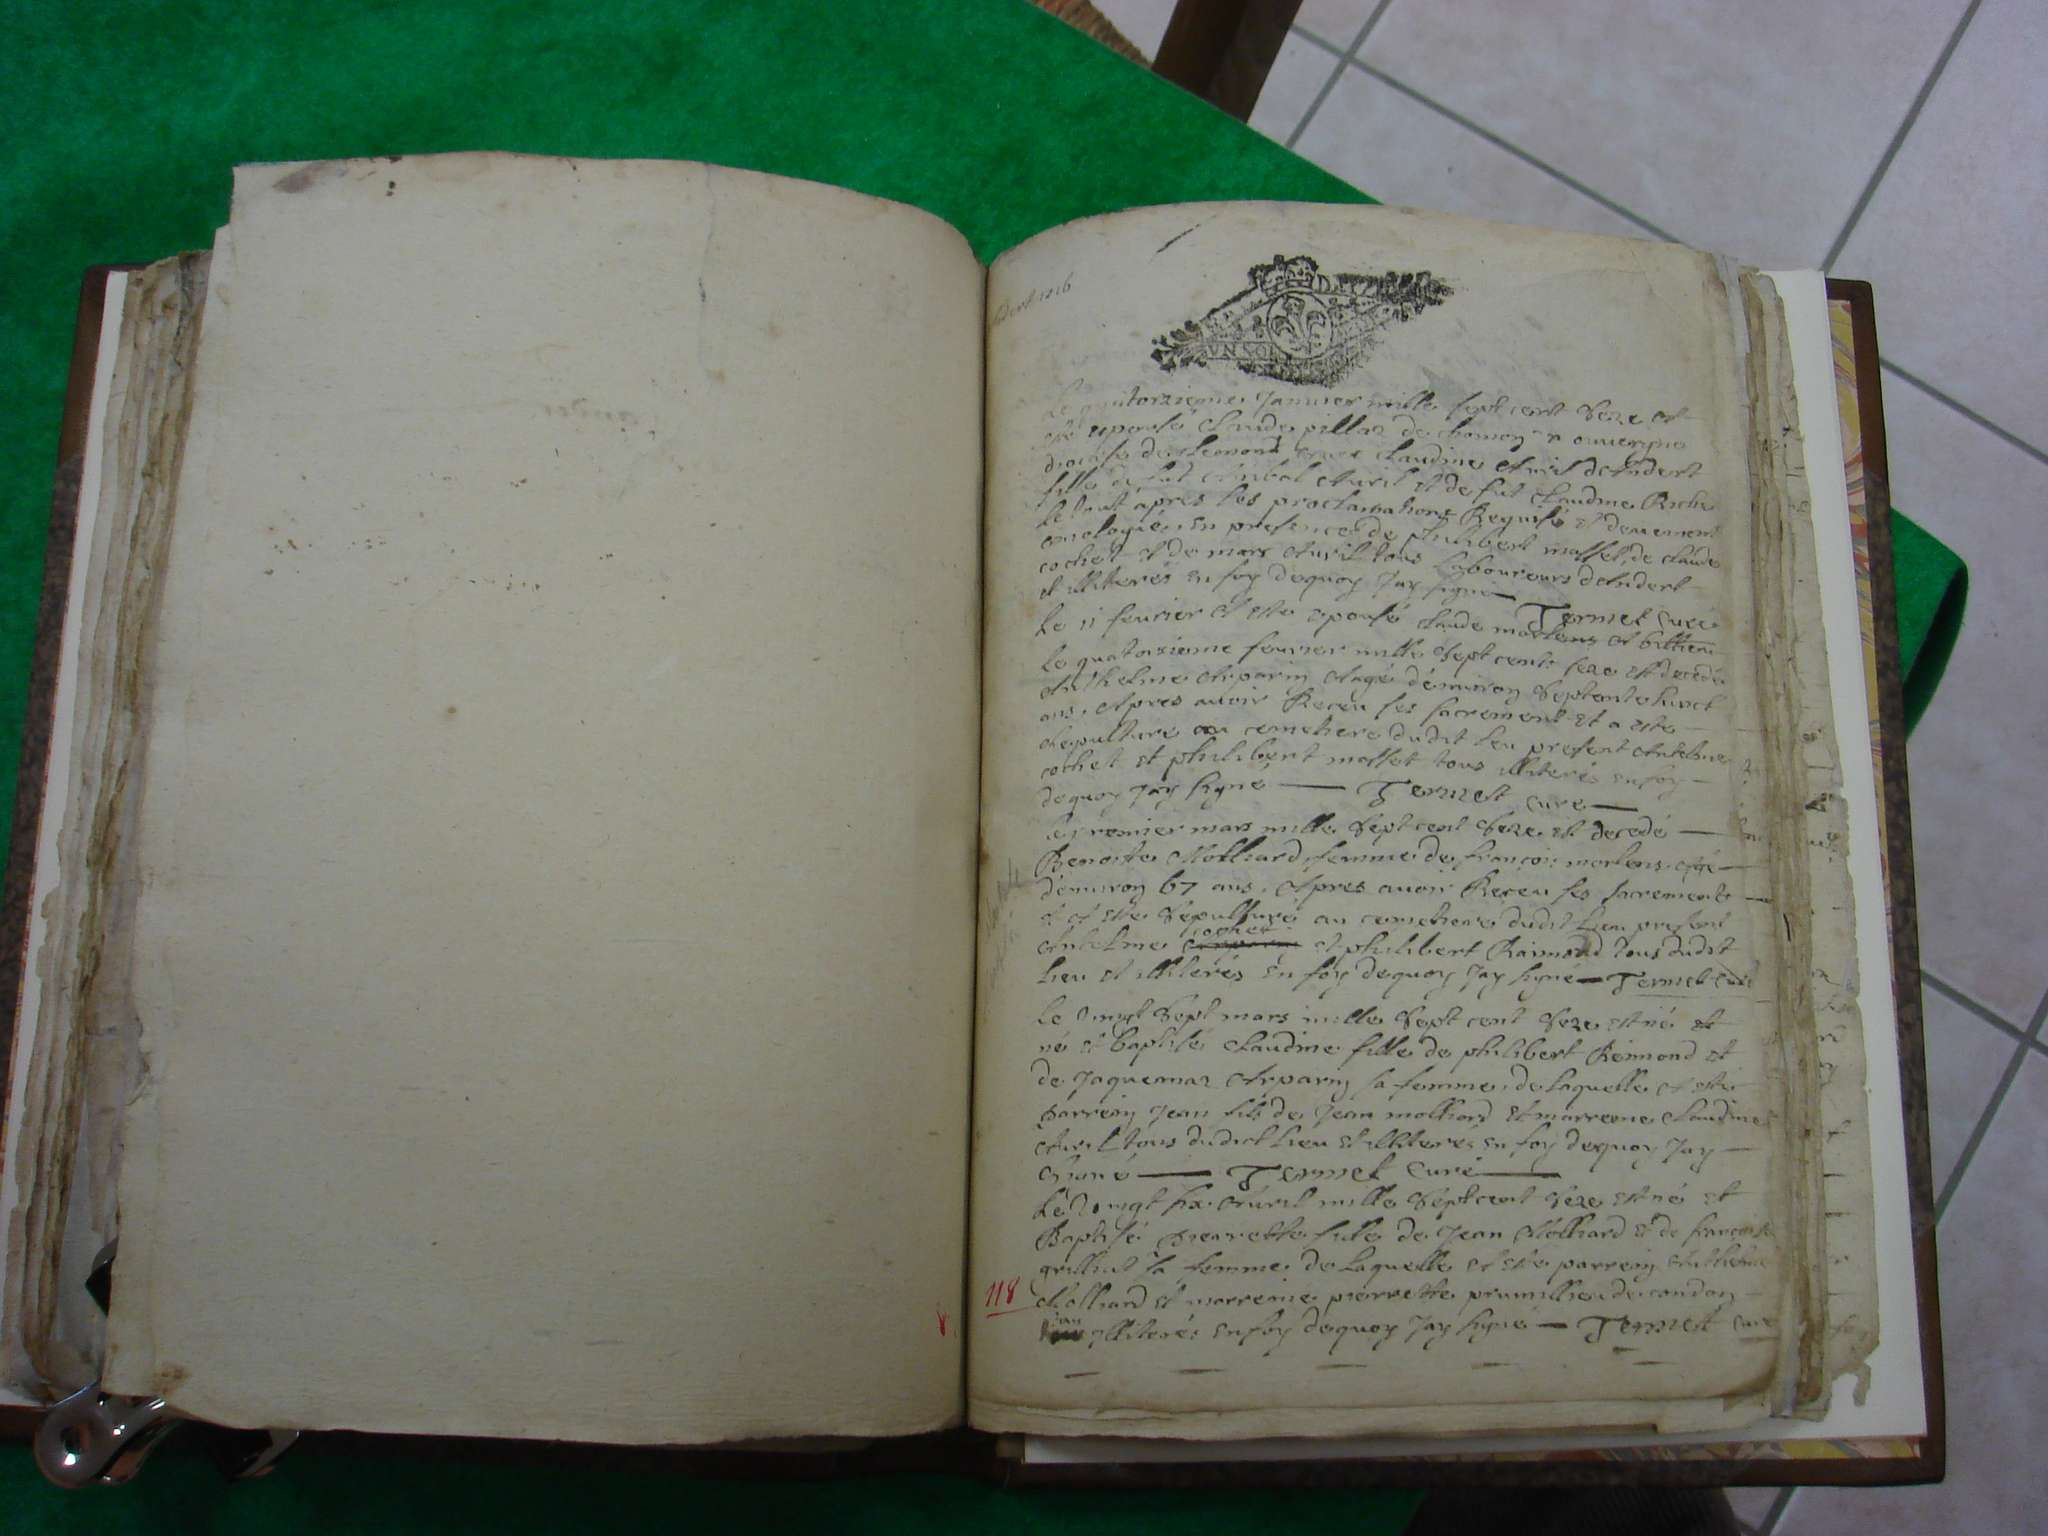 UN SOL
Le quatorzieme Janvier mille sept cent seze at
esté epousé Claude pillaz de en auvergne
diocese de Clermont avec Claudine Avril d'Andert
fille de fut Avril et de fut Claudine Riche
le tout apres les proclamations Requises et deuement
en presence de philibert masset, de claude
cochet et de Avril tous laboureurs d'Andert
et illiterés en foy dequoy Jay signé Termet Curé
Le 11 feurier at esté epousé claude martens et
le quatorsieme feurier mille sept cents seze est decedé
Anthelme Arparin Aagé d'enuiron septente
ans. Apres auoir Receu ses sacrement et a esté
sepulturé au cemetiere dudit lieu present Antelme
cochet et philibert masset tous illiterés en foy
dequoy Jay signé Termet Curé
le premier mars mille sept cent seze est decedé
Benoite Molliard femme de francois martens agé
d'enuiron 67 ans. Apres auoir Receu ses sacrements
et at esté sepulturé au cemetiere dudit lieu present
Antelme cochet et philibert Raimond tous dudit
lieu et illiterés en foy dequoy Jay signé Termet Curé
Le vingt sept mars mille sept cent seze est né et
né et baptisé Claudine fille de philibert Reimond et
de Jaquemaz Arparin sa femme, de laquelle at esté
parrein Jean fils de Jean molliard et marreine Claudine
Avril tous dudict lieu et illiterés en foy dequoy Jay
signé Termet Curé
Le vingt six Avril mille sept cent seze est né et
Baptisé pierrette fille de Jean Molliard et de francoise
grilliet sa femme de laquelle at esté parrein Anthelme
118 Molliard et marreine pierrette prumillieu de condon
tous illiterés en foy dequoy Jay signé Termet Curé